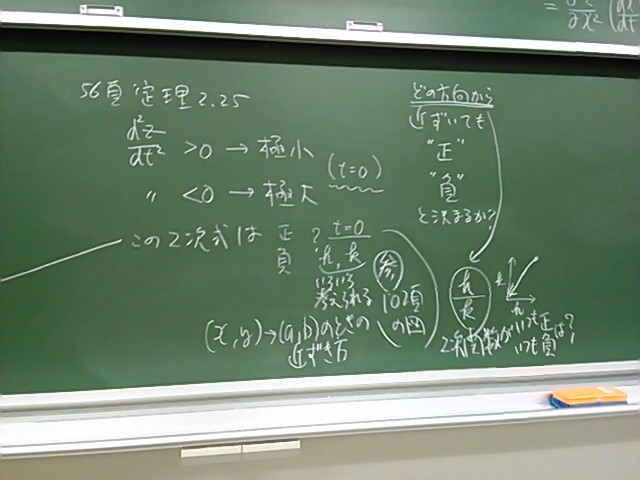 56頁 定理2.25
d²z/dt² >0 → 極小
〃 <0 → 極大 (t=0)
この2次式は 正 負 ? t=0
h, k
いろいろ
考えられる
参 10頁
の図
(x,y)→(a,b)のときの
近ずき方
どの方向から
近ずいても
"正"
"負"
と決まるか?
h/k
k
h
2次関数がいつも正
いつも負は?